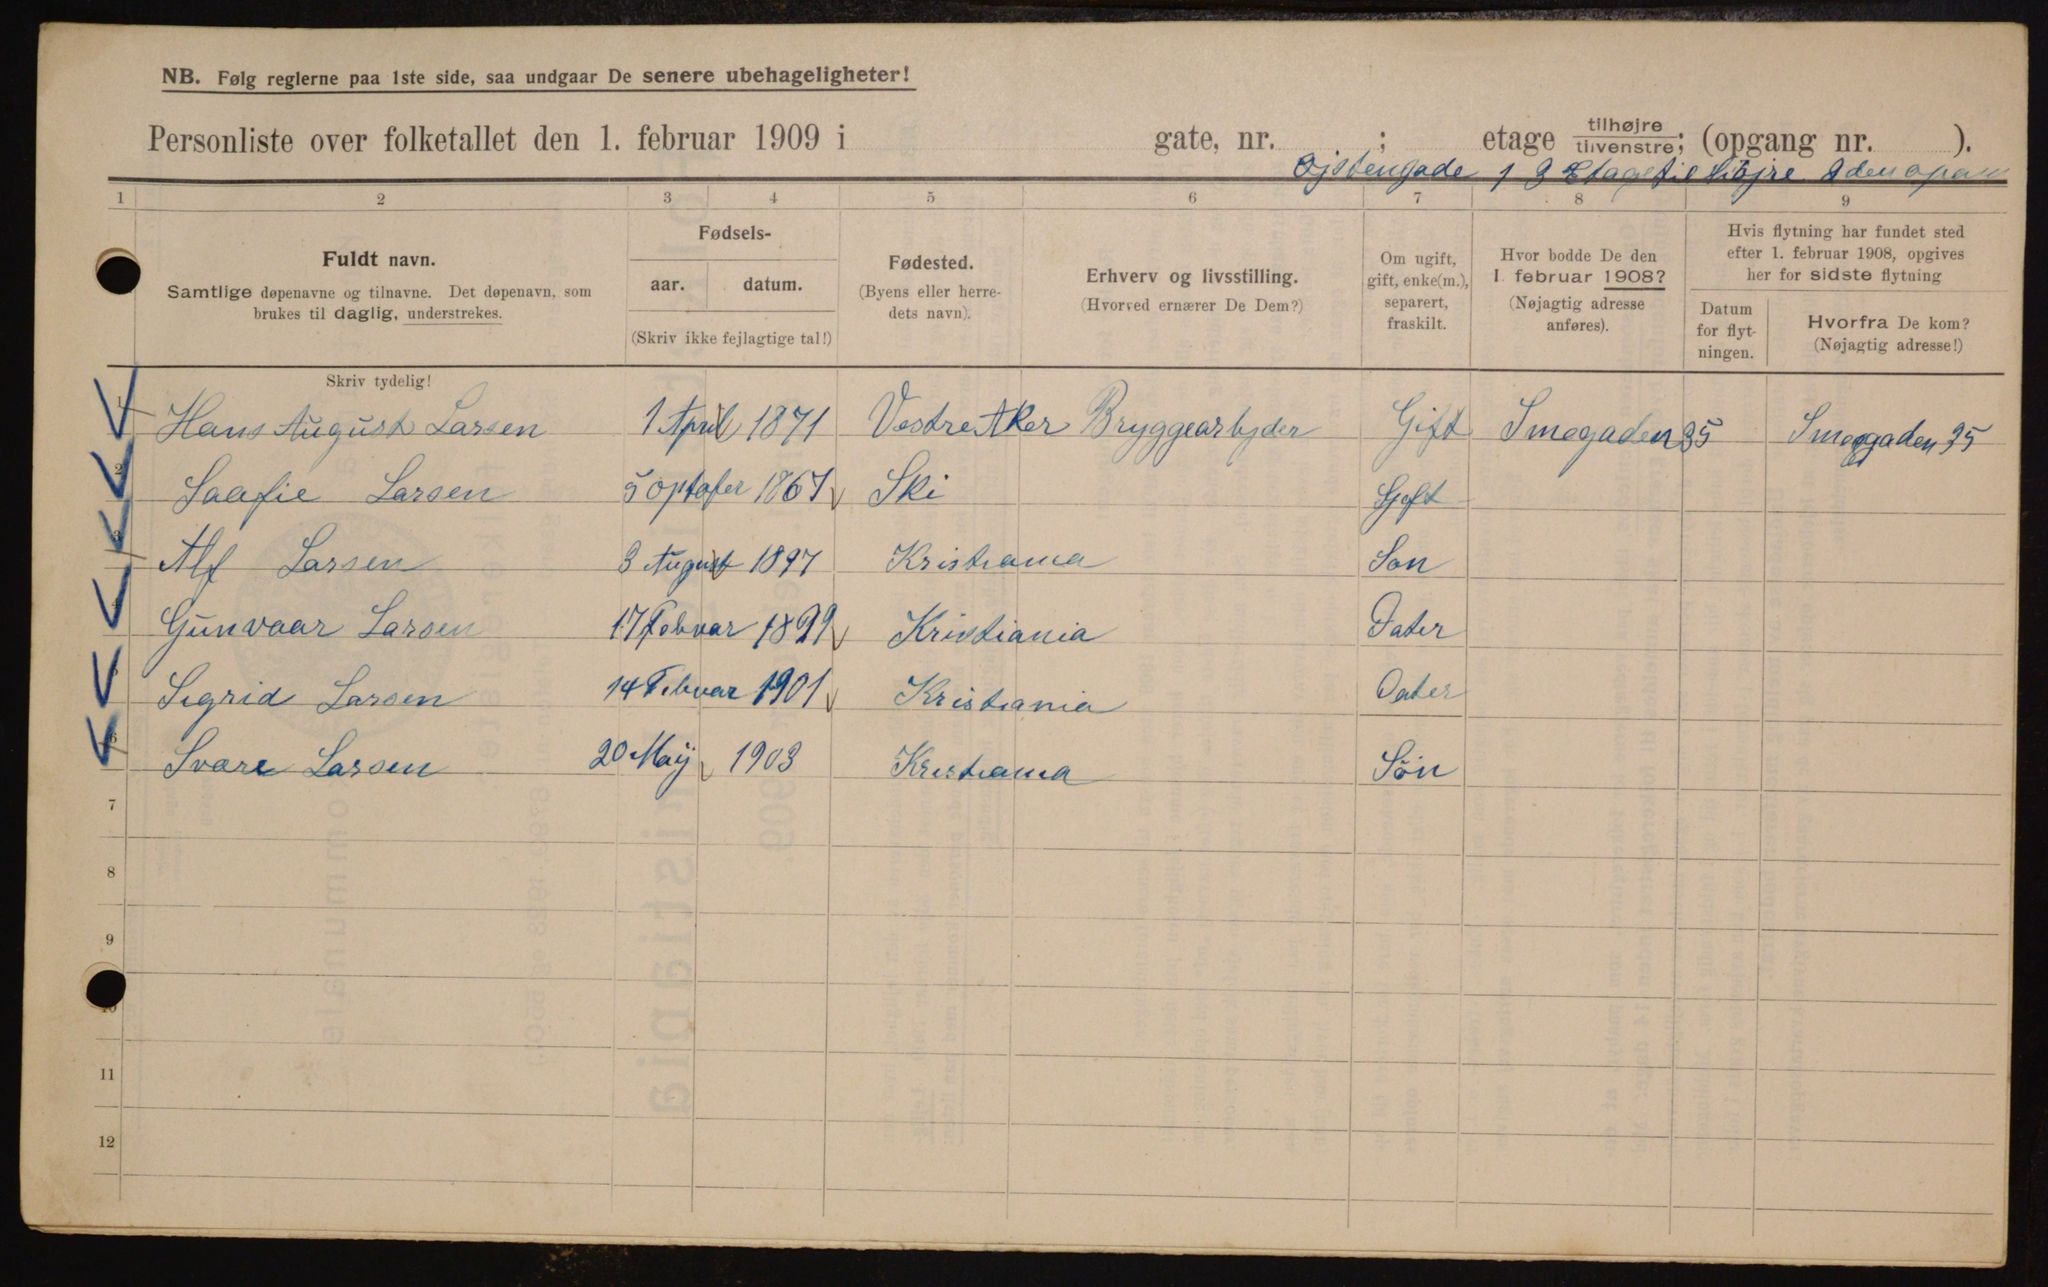 NB. Følg reglerne paa 1ste side, saa undgaar De senere ubehageligheter!
Personliste over folketallet den 1. februar 1909 i gate, nr. ; etage tilhøjre tilvenstre; (opgang nr. ).
1 3 Etage til Højre
1 2 3 4 5 6 7 8 9
Fuldt navn.
Samtlige døpenavne og tilnavne. Det døpenavn, som
brukes til daglig, understrekes.
Fødsels-
aar. datum.
(Skriv ikke fejlagtige tal!)
Fødested.
(Byens eller herre-
dets navn).
Erhverv og livsstilling.
(Hvorved ernærer De Dem?)
Om ugift,
gift, enke(m.),
separert,
fraskilt.
Hvor bodde De den
1. februar 1908?
(Nøjagtig adresse
anføres).
Hvis flytning har fundet sted
efter 1. februar 1908, opgives
her for sidste flytning
Datum
for flyt-
ningen.
Hvorfra De kom?
(Nøjagtig adresse!)
Skriv tydelig!
1 Hans August Larsen 1 April 1871 Vestre Aker Bryggearbyder Gift Smegaden 35 Smeggaden 35
2 Saafie Larsen 5 optober 1867 Ski Gift
3 Alf Larsen 3 August 1897 Kristiania Son
4 Gunvaar Larsen 17 Febuar 1899 Kristiania Dater
5 Sigrid Larsen 14 Febuar 1901 Kristiania Dater
6 Svare Larsen 20 Maij 1903 Kristiania Søn
7
8
9
10
11
12